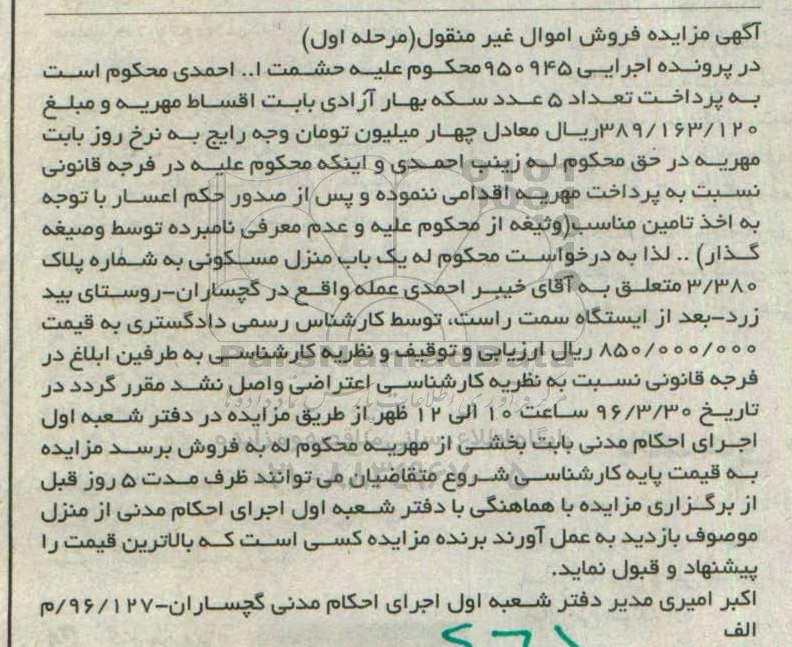 آگهی مزایده فروش اموال غیر منقول(مرحله اول)
در پرونده اجرایی ۹۵۰۹۴۵محکوم علیه حشمت ا.. احمدی محکوم است
به پرداخت تعداد ۵ عدد سکه بهار آزادی بابت اقساط مهریه و مبلغ
۳۸۹/۱۶۳/۱۲۰ریال معادل چهار میلیون تومان وجه رایج به نرخ روز بابت
مهریه در حق محکوم له زینب احمدی و اینکه محکوم علیه در فرجه قانونی
نسبت به پرداخت مهریه اقدامی ننموده و پس از صدور حکم اعسار با توجه
به اخذ تامین مناسب(وثیغه از محکوم علیه و عدم معرفی نامبرده توسط وصیغه
گذار) .. لذا به درخواست محکوم له یک باب منزل مسکونی به شماره پلاک
۳/۳۸۰ متعلق به آقای خیبر احمدی عمله واقع در گچساران-روستای بید
زرد-بعد از ایستگاه سمت راست، توسط کارشناس رسمی دادگستری به قیمت
۸۵۰/۰۰۰/۰۰۰ ریال ارزیابی و توقیف و نظریه کارشناسی به طرفین ابلاغ در
فرجه قانونی نسبت به نظریه کارشناسی اعتراضی واصل نشد مقرر گردد در
تاریخ ۹۶/۳/۳۰ ساعت ۱۰ الی ۱۲ ظهر از طریق مزایده در دفتر شعبه اول
اجرای احکام مدنی بابت بخشی از مهریه محکوم له به فروش برسد مزایده
به قیمت پایه کارشناسی شروع متقاضیان می توانند ظرف مدت ۵ روز قبل
از برگزاری مزایده با هماهنگی با دفتر شعبه اول اجرای احکام مدنی از منزل
موصوف بازدید به عمل آورند برنده مزایده کسی است که بالاترین قیمت را
پیشنهاد و قبول نماید.
اکبر امیری مدیر دفتر شعبه اول اجرای احکام مدنی گچساران-۹۶/۱۲۷/م
الف
ParsNamadData